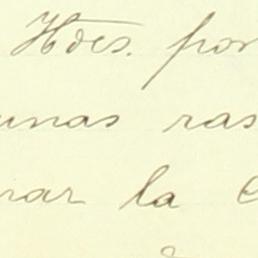 Hdes. por
unas ras
rar la